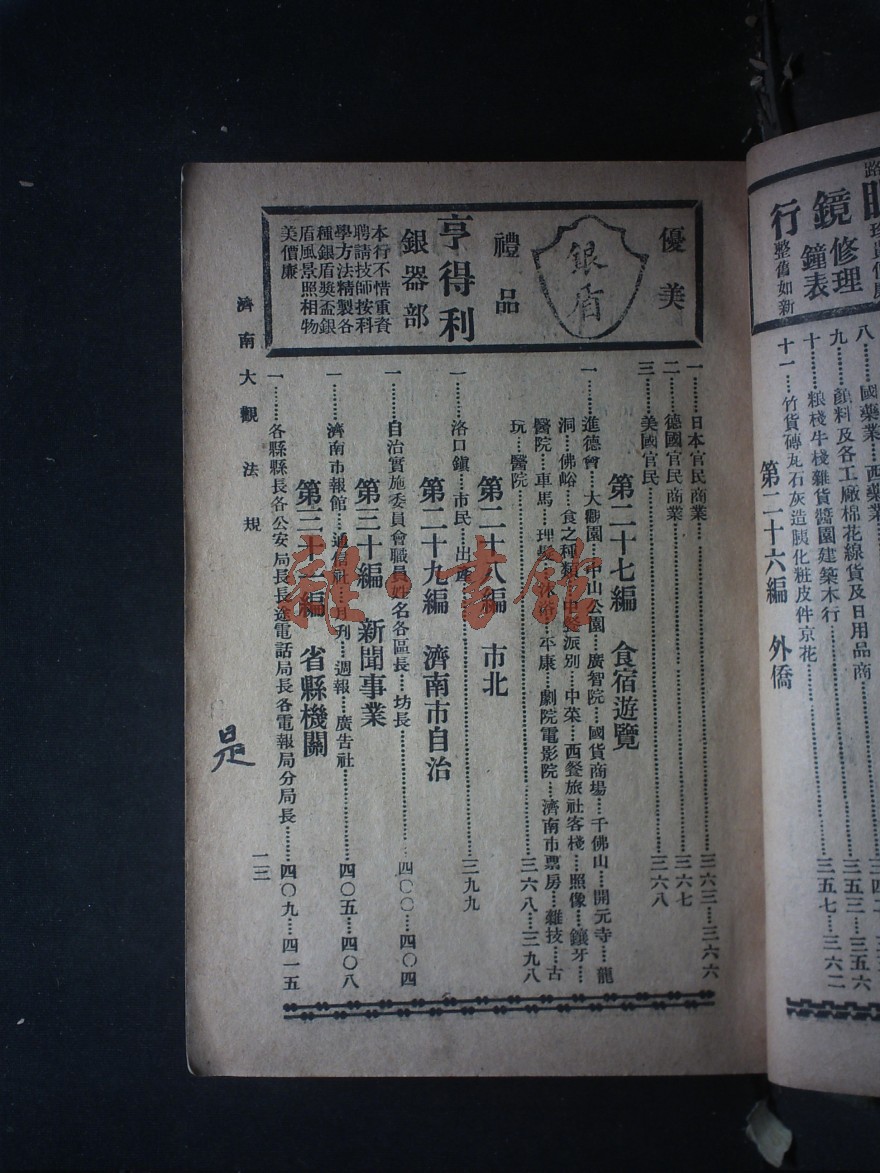 行鏡
修理
鐘表
整舊如新
八……國藥業……西藥業
九……顏料及各工廠棉花線貨及日用品商……三五三……三五六
十……粮棧牛棧雜貨醬園建築木行……三五七……三六二
十一……竹貨磚瓦石灰造胰化粧皮件京花
第二十六編 外僑
優美
銀盾
禮品
亨得利
銀器部
本行不惜重資
聘請技師按科
學方法精製各
種銀盾獎盃銀
盾風景照相物
美價廉
一……日本官民商業……三六三……三六六
二……德國官民商業……三六七
三……美國官民……三六八
第二十七編 食宿遊覽
一……進德會……大觀園……中山公園……廣智院……國貨商場……千佛山……開元寺……龍
洞……佛峪……食之種類……中餐派别……中菜……西餐旅社客棧……照像……鑲牙……
醫院……車馬……理髮沐浴……平康……劇院電影院……濟南市票房……雜技……古
玩……醫院……三六八……三九八
第二十八編 市北
一……洛口鎮……市民……出產……三九九
第二十九編 濟南市自治
一……自治實施委員會職員姓名各區長……坊長……四〇〇……四〇四
第三十編 新聞事業
一……濟南市報館……通信社……月刊……週報……廣告社……四〇五……四〇八
第三十一編 省縣機關
一……各縣縣長各公安局長長途電話局長各電報局分局長……四〇九……四一五
濟南大觀 法規
一三
是
雜·書館